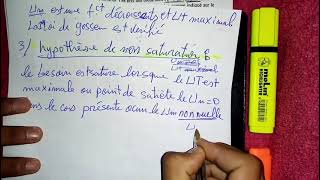 Um est une fct décroissante et UT maximal
La loi de gossen est vérifié
3) hypothèse de non saturation
le besoin est saturé lorsque le UT est
maximale au point de satiété le Um=0
dans le cas présente aucun le Um non nuelle
U
molums